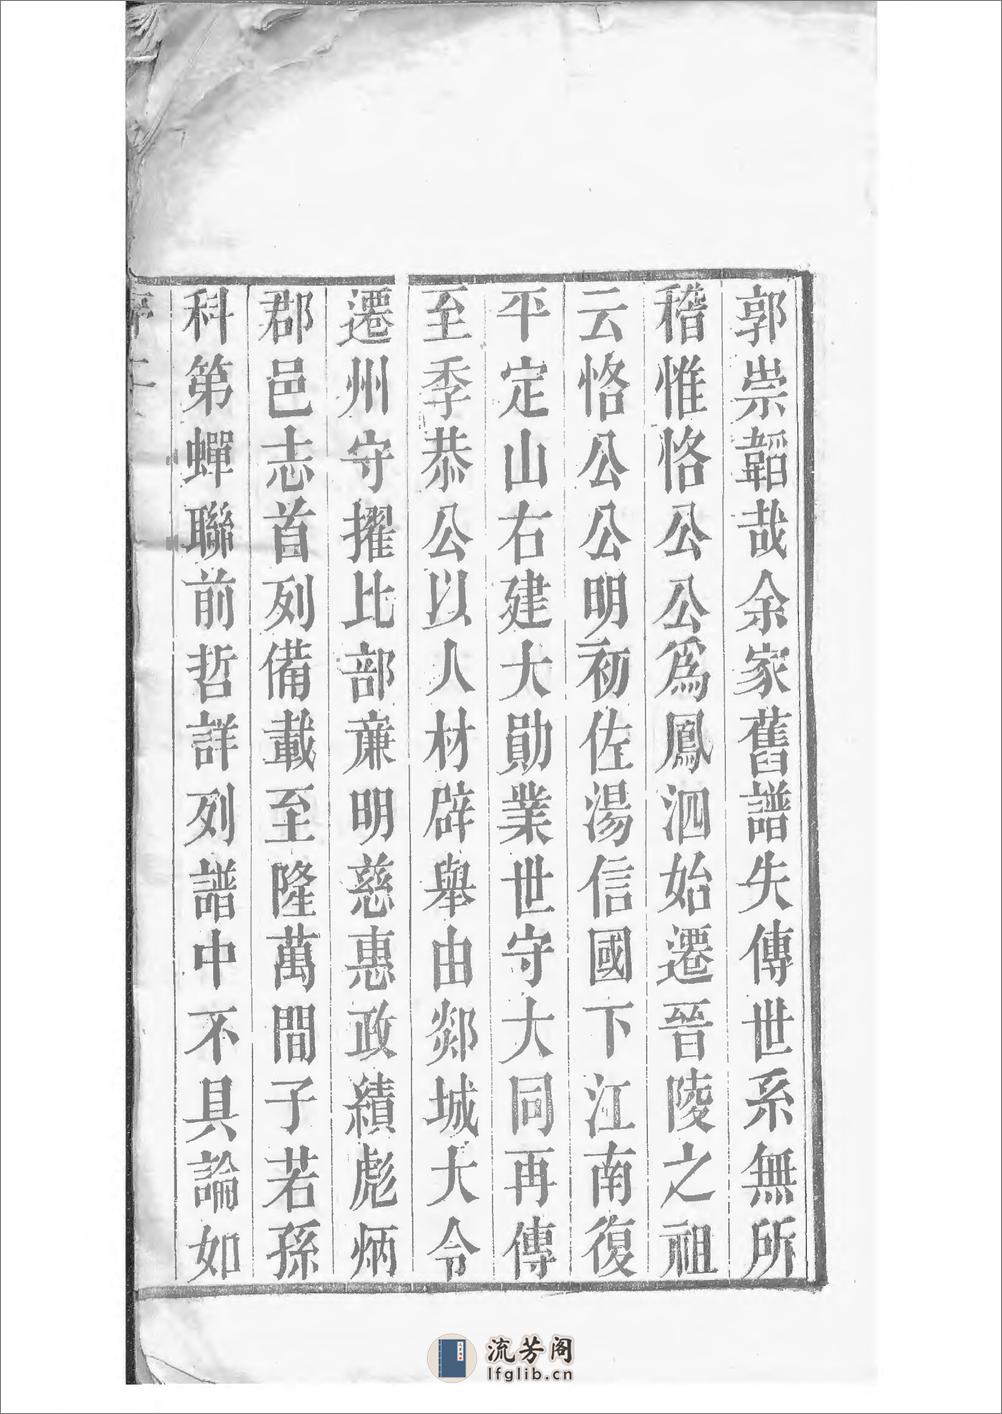 郭崇韜哉余家舊譜失傳世系無所
稽惟恪公公爲鳳泗始遷晉陵之祖
云恪公公明初佐湯信國下江南復
平定山右建大勛業世守大同再傳
至季恭公以人材辟舉由郯城大令
遷州守擢比部亷明慈惠政績彪炳
郡邑志首列備載至隆萬間子若孫
科第蟬聯前哲詳列譜中不具論如
流芳阁
lfglib.cn